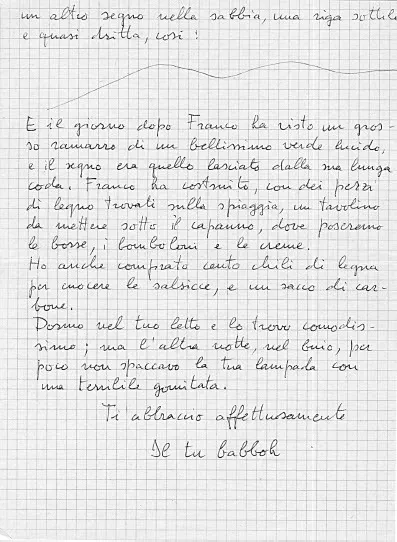 un altro segno nella sabbia, una riga sottile
e quasi dritta, così:
E il giorno dopo Franco ha visto un gros-
so ramarro di un bellissimo verde lucido,
e il segno era quello lasciato dalla sua lunga
coda. Franco ha costruito, con dei pezzi
di legno trovati sulla spiaggia, un tavolino
da mettere sotto il capanno, dove poseremo
le borse, i bomboloni e le creme.
Ho anche comprato cento chili di legna
per cuocere le salsicce, e un sacco di car-
bone.
Dormo nel tuo letto e lo trovo comodis-
simo; ma l'altra notte, nel buio, per
poco non spaccavo la tua lampada con
una terribile gomitata.
Ti abbraccio affettuosamente
Il tu babboh